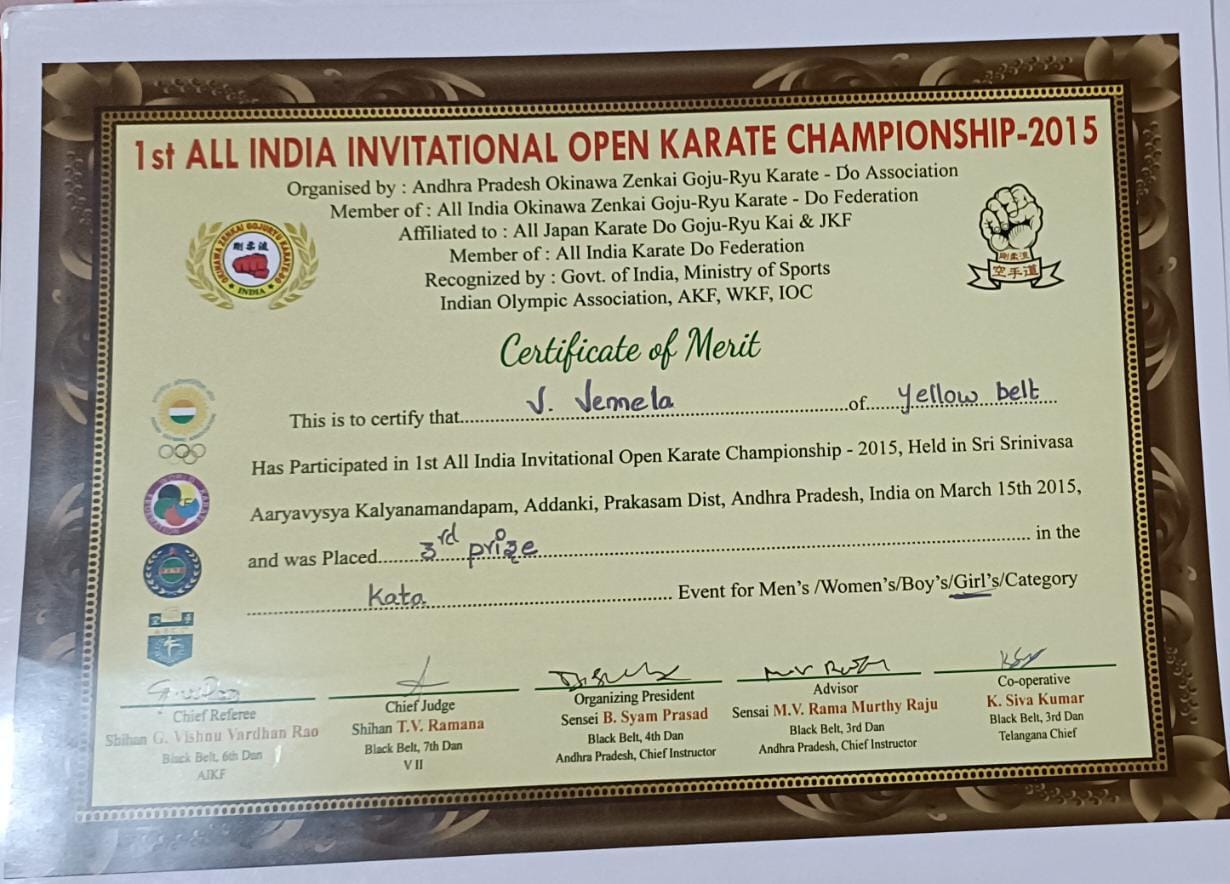 1st ALL INDIA INVITATIONAL OPEN KARATE CHAMPIONSHIP-2015
Organised by : Andhra Pradesh Okinawa Zenkai Goju-Ryu Karate - Do Association
Member of : All India Okinawa Zenkai Goju-Ryu Karate - Do Federation
Affiliated to : All Japan Karate Do Goju-Ryu Kai & JKF
Member of : All India Karate Do Federation
Recognized by : Govt. of India, Ministry of Sports
Indian Olympic Association, AKF, WKF, IOC
OKINAWA ZENKAI GOJURYU KARATE-DO
剛柔流
INDIA
剛柔流
空手道
Certificate of Merit
This is to certify that J. Jemela of yellow belt
Has Participated in 1st All India Invitational Open Karate Championship - 2015, Held in Sri Srinivasa
Aaryavysya Kalyanamandapam, Addanki, Prakasam Dist, Andhra Pradesh, India on March 15th 2015,
and was Placed 3rd prize in the
Kata Event for Men's /Women's/Boy's/Girl's/Category
Chief Referee
Shihan G. Vishnu Vardhan Rao
Black Belt, 6th Dan
AIKF
Chief Judge
Shihan T.V. Ramana
Black Belt, 7th Dan
V II
Organizing President
Sensei B. Syam Prasad
Black Belt, 4th Dan
Andhra Pradesh, Chief Instructor
Advisor
Sensai M.V. Rama Murthy Raju
Black Belt, 3rd Dan
Andhra Pradesh, Chief Instructor
Co-operative
K. Siva Kumar
Black Belt, 3rd Dan
Telangana Chief